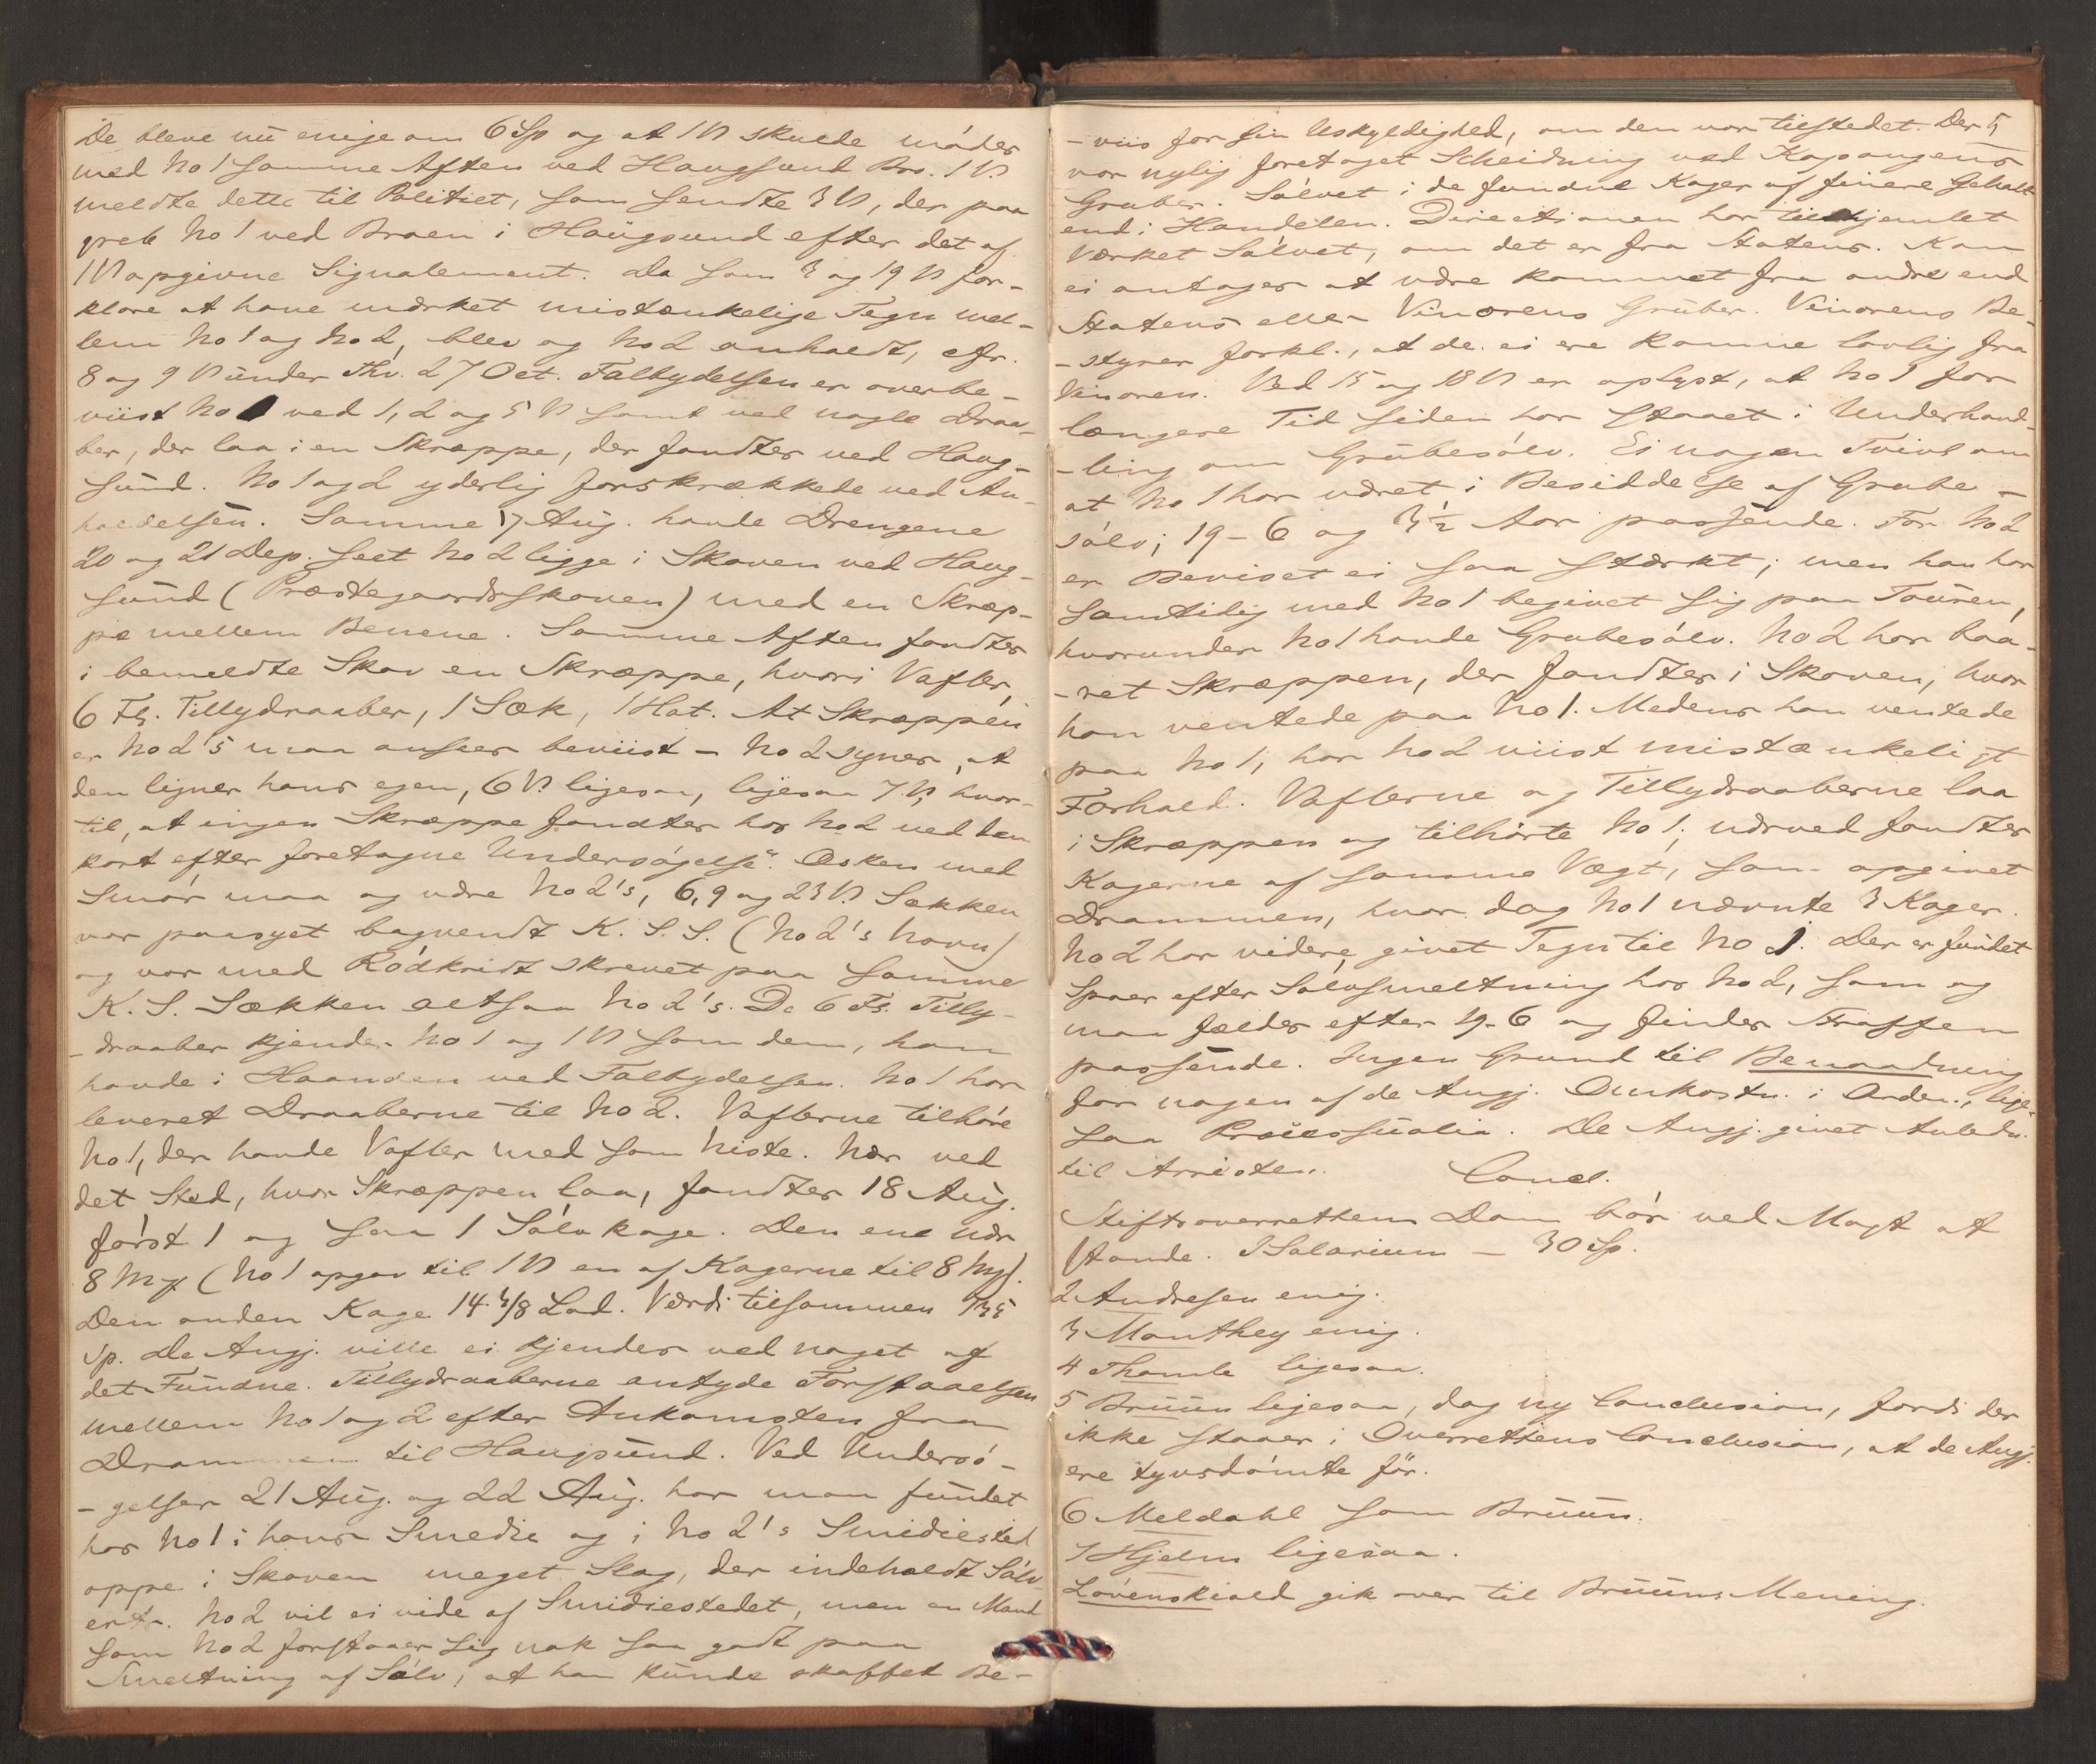 De bleve nu enige om 6 Sp og at 1 V skulde møde
med No 1 samme Aften ved Haugsund Bro. 1 V.
meldte dette til Politiet, som sendte 3 V, der paa
greb No 1 ved Broen i Haugsund efter det af
1 V opgivne Signalement. Da som 3 og 19 V for-
klare at have mærket mistænkelige Tegn mel-
lem No 1 og No 2, blev og No 2 anholdt, cfr.
8 og 9 V under Thv. 27 Oct. Falbydelsen er overbe-
viist No 1 ved 1, 2 og 5 V samt ved nogle Draa-
ber, der laa i en Skræppe, der fandtes ved Haug-
sund. No 1 og 2 yderlig forskrækkede ved An-
holdelsen. Samme 17 Aug. havde Drengene
20 og 21 Dep. seet No 2 ligge i Skoven ved Haug-
sund (Præstegaardsskoven) med en Skræp-
pe mellem Benene. Samme Aften fandtes
i bemeldte Skov en Skræppe, hvori Vafler,
6 Fl. Tillydraaber, 1 Sæk, 1 Hat. At Skræppen
er No 2's maa ansees beviist - No 2 synes, at
den ligner hans egen, 6 V. ligesaa, ligesaa 7 V, hvor-
til, at ingen Skræppe fandtes hos No 2 ved den
kort efter foretagne Undersøgelse. Æsken med
Smør maa og være No 2's, 6, 9 og 23 V. Sækken
var paasyet bagvendt K. S. S. (No 2's Navn)
og var med Rødkridt skrevet paa samme
K. S. Sækken altsaa No 2's. De 6 Fl. Tilly-
-draaber kjender No 1 og 1 V som dem, han
havde i Haanden ved Falbydelsen. No 1 har
leveret Draaberne til No 2. Vaflerne tilhøre
No 1, der havde Vafler med som Niste. Nær ved
det Sted, hvor Skræppen laa, fandtes 18 Aug.
først 1 og saa 1 Sølvkage. Den ene var
8 Mrk (No 1 opgav til 1 V en af Kagerne til 8 Mrk).
Den anden Kage 14 3/8 Lod. Værdi tilsammen 135
Sp. De Angj. ville ei kjendes ved noget af
det Fundne. Tillydraaberne antyde Forstaaelsen
mellem No 1 og 2 efter Ankomsten fra
Drammen til Haugsund. Ved Undersø-
-gelser 21 Aug. og 22 Aug. har man fundet
hos No 1 i hans Smedie og i No 2's Smidiested
oppe i Skoven meget Slag, der indeholdt Sølv
No 2 vil ei vide af Smidiestedet, men en Mand
som No 2 forstaaer sig nok saa godt paa
Smeltning af Sølv, at han kunde skaffet Be-
-viis for sin Uskyldighed, om den var tilstedet. Der
var nylig foretaget Scheidning ved Kapangens
Gruber. Sølvet i de fundne Kager af finere Gehalt
end i Handelen. Directionen har tilkjendet
Værket Sølvet, om det er fra Statens. Kan
ei antages at være kommet fra andre end
Statens eller Vinorens Gruber. Vinorens Be-
-styrer forkl., at de ei ere komne lovlig fra
Vinoren. Ved 15 og 18 V er oplyst, at No 1 for
længere Tid siden har staaet i Underhand-
-ling om Grubesølv. Ei nogen Tvivl om
at No 1 har været i Besiddelse af Grube-
sølv; 19-6 og 3½ Aar passende. For No 2
er Beviset ei saa stærkt; men han har
samtidig med No 1 begivet sig paa Touren,
hvorunder No 1 havde Grubesølv. No 2 har baa-
-ret Skræppen, der fandtes i Skoven, hvor
han ventede paa No 1. Medens han ventede
paa No 1, har No 2 viist mistænkeligt
Forhold. Vaflerne og Tillydraaberne laa
i Skræppen og tilhørte No 1; nærved fandtes
Kagerne af samme Vægt, som opgivet
Drammen, hvor dog No 1 nævnte 3 Kager.
No 2 har videre givet Tegn til No 1. Der er fundet
Spoer efter Sølvsmeltning hos No 2, som og
maa fældes efter 19-6 og finder Straffen
passende. Ingen Grund til Benaadning
for nogen af de Angj. Omkostn. i Orden, lige-
saa Processualia. De Angj. givet Anledn.
til Arresten. Concl.
Stiftsoverrettens Dom bør ved Magt at
stande. I Salarium - 30 Sp.
2 Andresen enig.
3 Manthey enig.
4 Thomle ligesaa.
5 Bruun ligesaa, dog ny Conclusion, fordi der
ikke staaer i Overrettens Conclusion, at de Angj.
ere tyvsdømte før.
6 Meldahl som Bruun.
7 Hjelm ligesaa.
Løvenskiold gik over til Bruuns Mening.